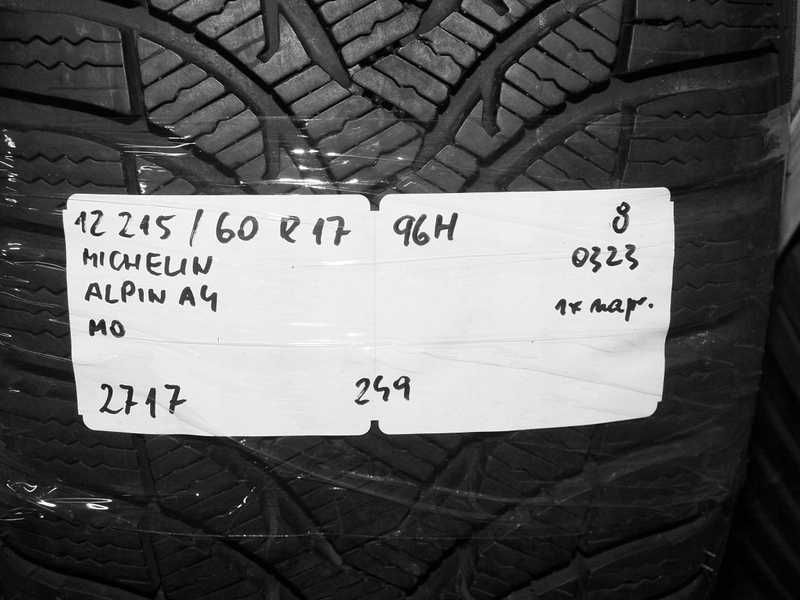 12 215 / 60 R 17 96H 8
MICHELIN 0323
ALPIN A4 1x napr.
MO
2717 249